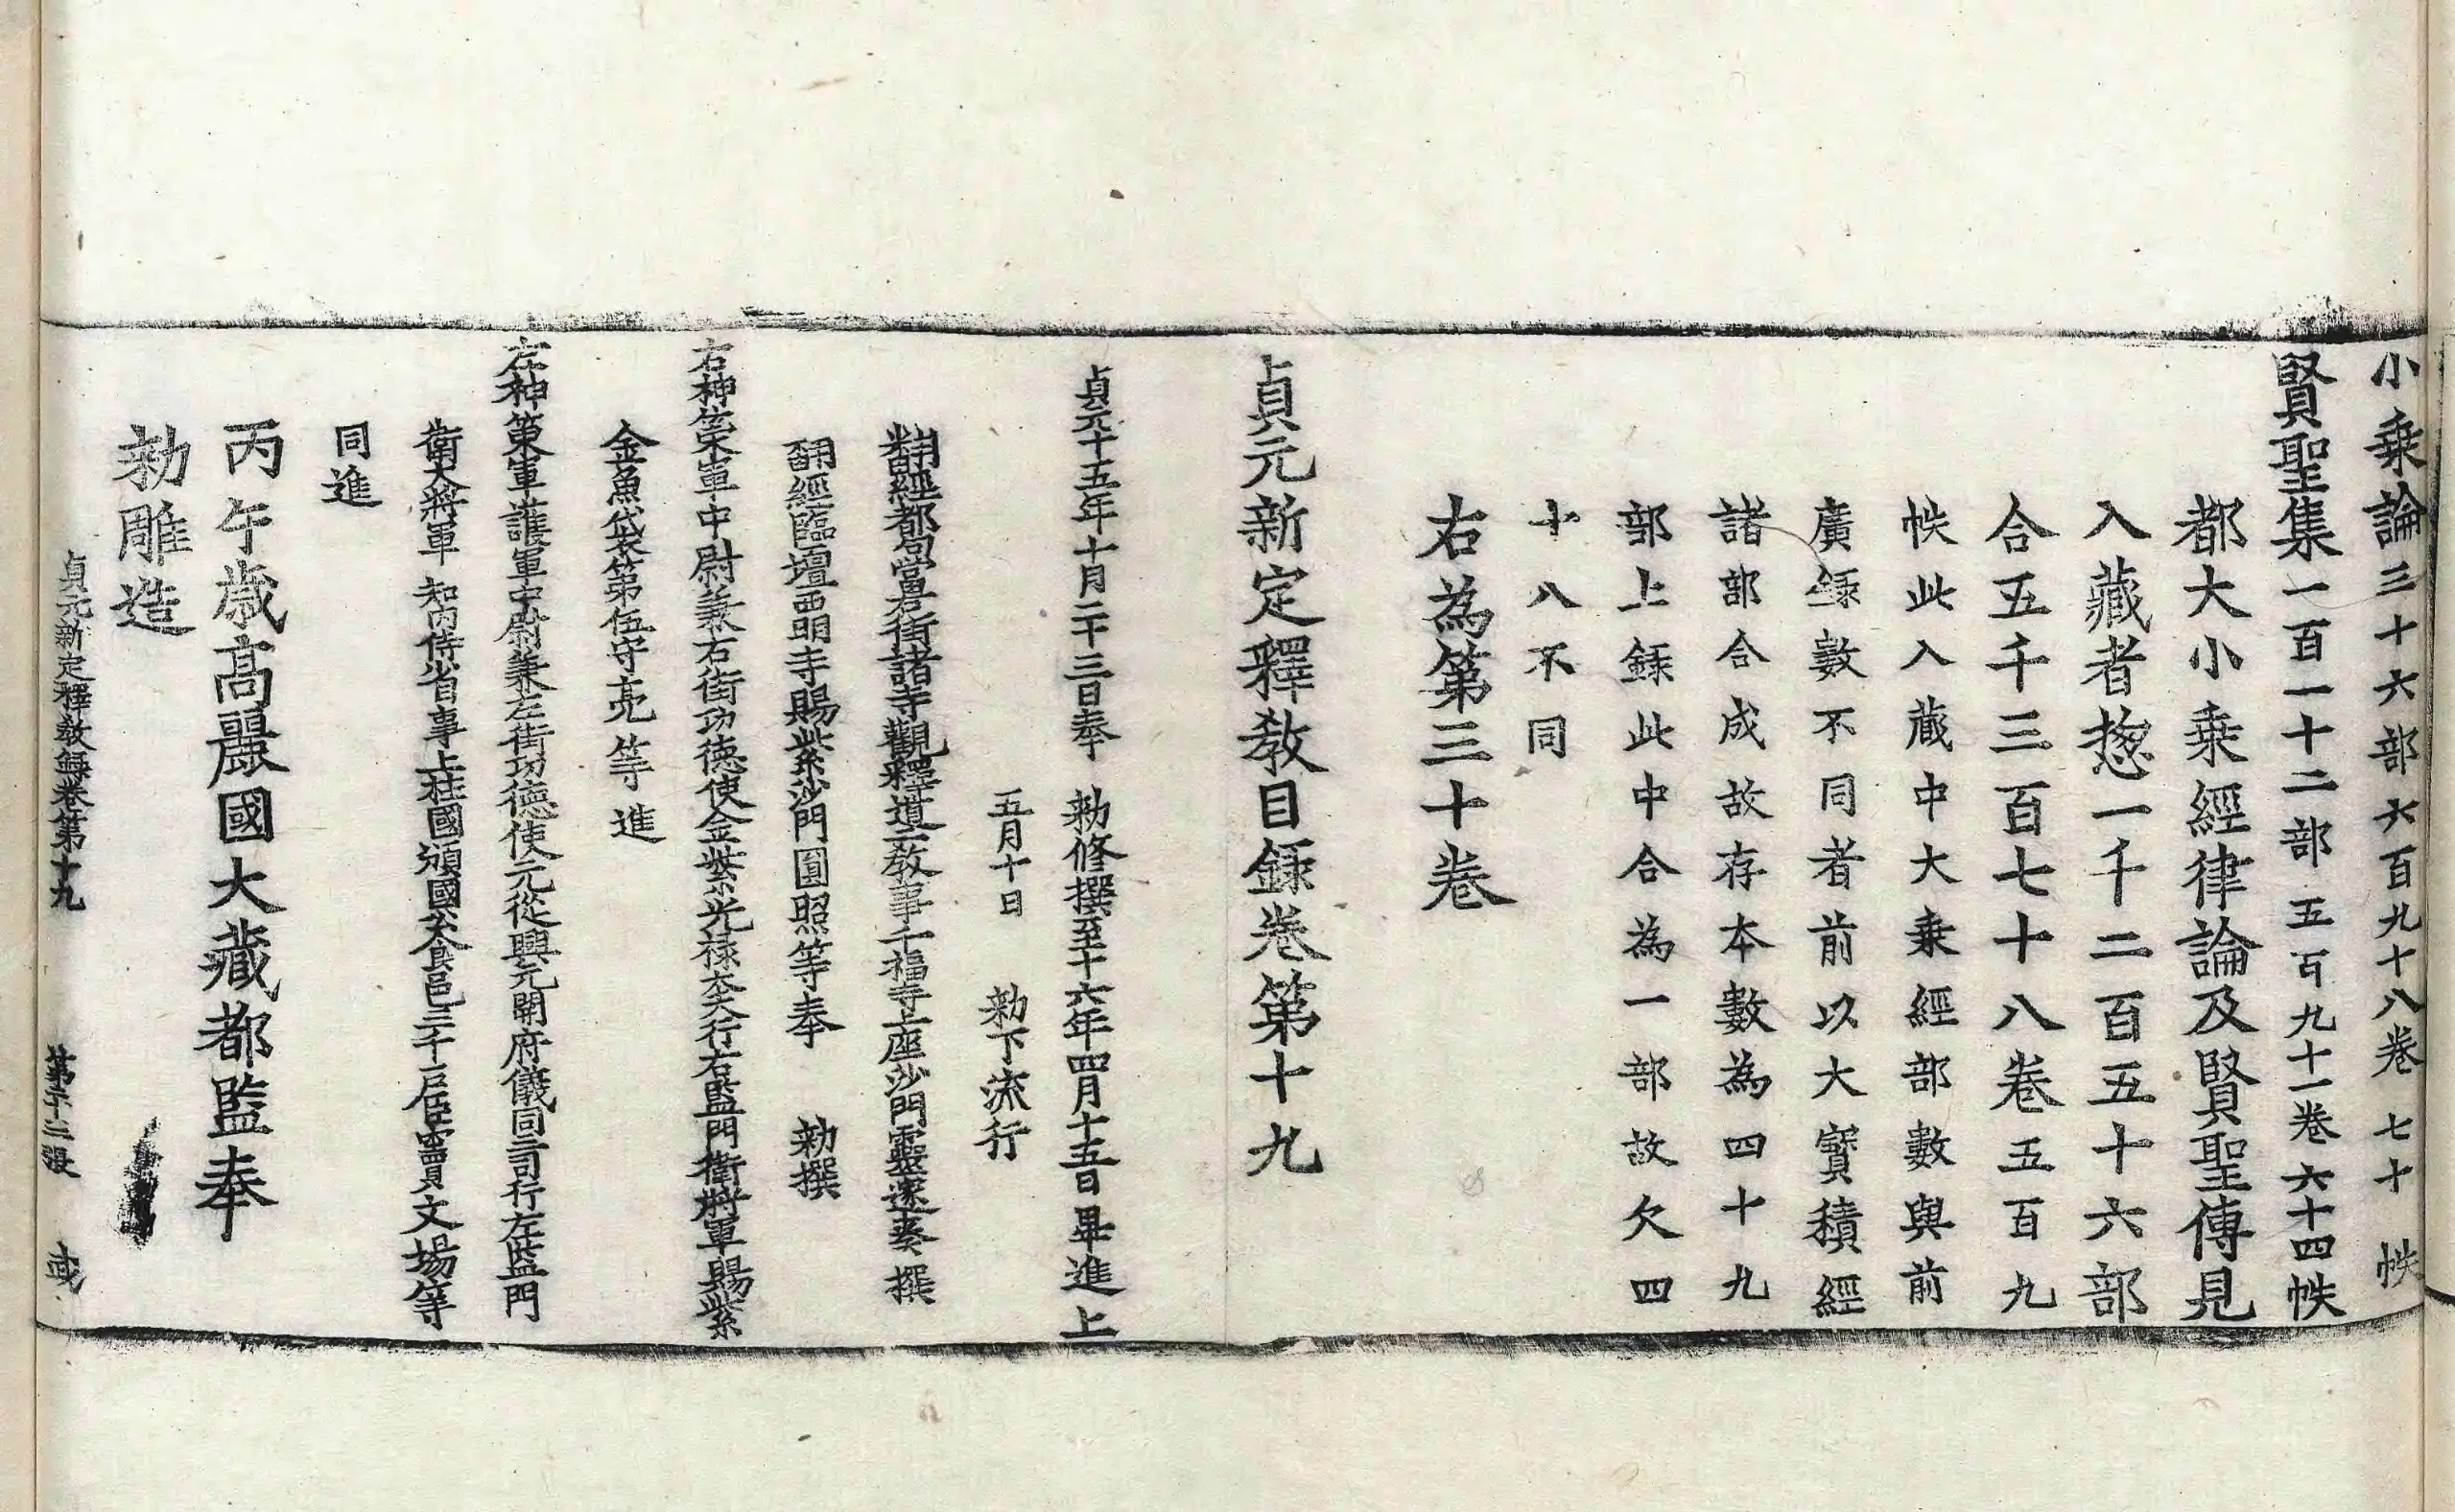 小乗論三十六部六百九十八卷七十帙
賢聖集一百一十二部五百九十一卷六十四帙
都大小乗經律論及賢聖傳見
入藏者惣一千二百五十六部
合五千三百七十八卷五百九
帙此入藏中大乗經部數與前
廣録數不同者前以大寳積經
諸部合成故存本數為四十九
部上録此中合為一部故欠四
十八不同
右為第三十卷
貞元新定釋教目録卷第十九
貞元十五年十月二十三日奉 勑修撰至十六年四月十五日畢進上
五月十日 勑下流行
翻經都勾當右街諸寺觀釋道二教事千福寺上座沙門靈邃奏撰
翻經臨壇西明寺賜紫沙門圓照等奉 勑撰
右神策軍中中尉兼右街功德使金紫光禄大夫行右監門衛將軍賜紫
金魚袋第伍守亮等進
左神策軍護軍中尉兼左街功德使元從興元開府儀同三司行左監門
衛大將軍知内侍省事上柱國頒國公食邑三千戶臣竇文場等
同進
丙午歳高麗國大藏都監奉
勑雕造
貞元新定釋教録卷第十九 第二十三張 彧